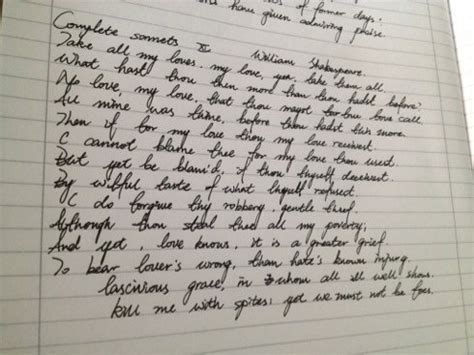 of former days,
have given admiring praise.
Complete sonnets XL William Shakespeare.
Take all my loves, my love, yea, take them all.
What hast thou then more than thou hadst before?
No love, my love, that thou mayst true love call.
All mine was thine, before thou hadst this more.
Then if for my love thou my love receivest
I cannot blame thee for my love thou used.
But yet be blam'd, if thou thyself deceivest
By wilful taste of what thyself refused.
I do forgive thy robbery, gentle thief.
Although thou steal thee all my poverty;
And yet, love knows, it is a greater grief
To bear lover's wrong, than hate's known injury.
lascivious grace, in whom all ill well shows.
kill me with spites; yet we must not be foes.